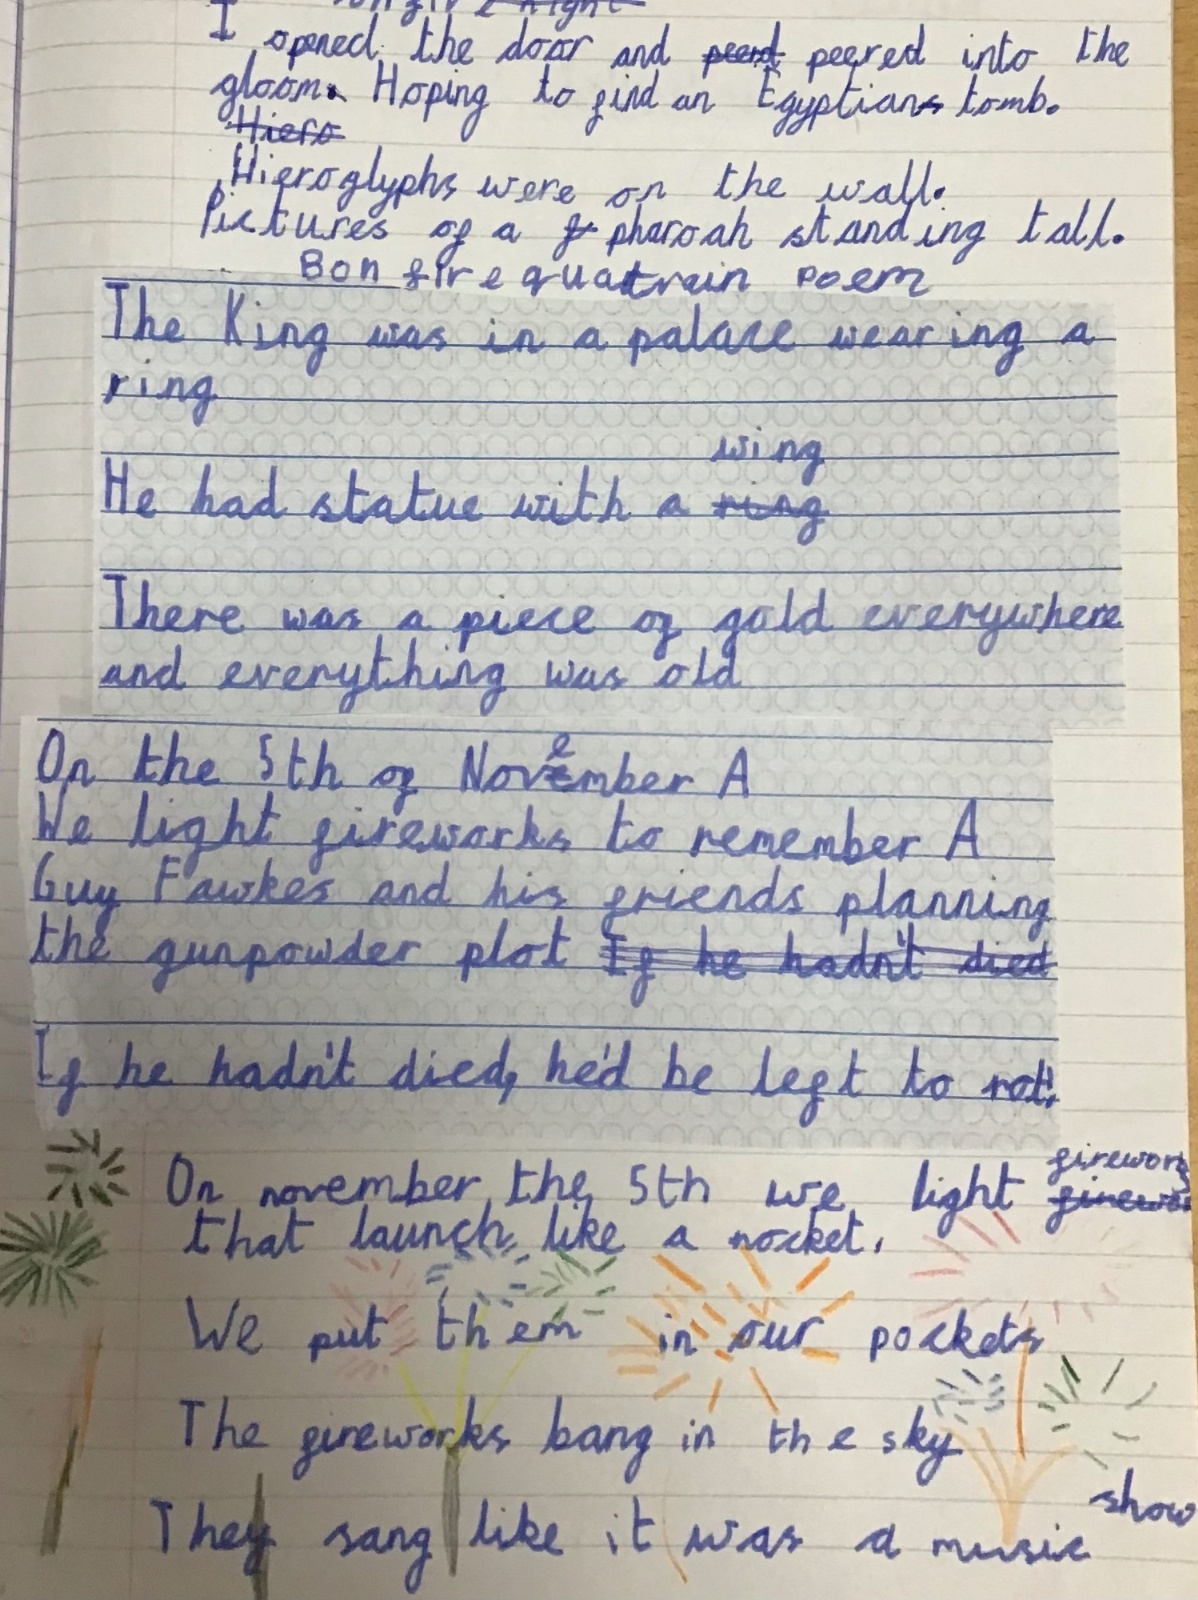 I opened the door and peered peered into the
gloom. Hoping to find an Egyptians tomb.
Hiero
Hieroglyphs were on the wall.
Pictures of a pharoah standing tall.
Bonfire quatrain poem
The King was in a palace wearing a
ring
wing
He had statue with a ring
There was a piece of gold everywhere
and everything was old
On the 5th of November A
We light fireworks to remember A
Guy Fawkes and his friends planning
the gunpowder plot If he hadn't died
If he hadn't died, he'd be left to rot!
fireworks
On november the 5th we light
that launch like a rocket.
We put them in our pockets
The fireworks bang in the sky
show
They sang like it was a music